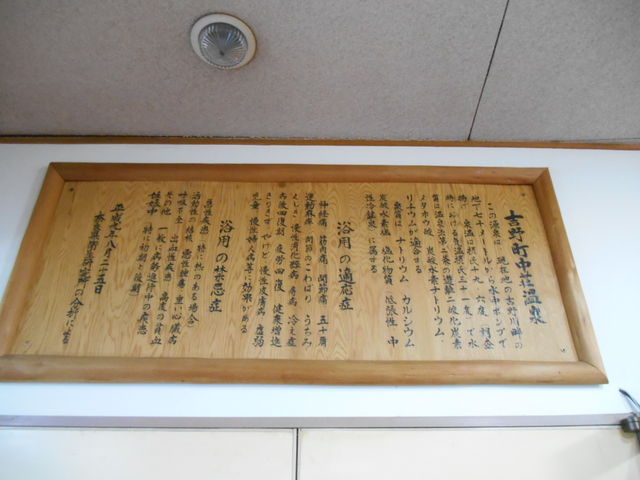 吉野町中荘温泉
この源泉は、現在地の吉野川畔の
地下七十メートルから水中ポンプで
揚げ、泉温は摂氏十九・六度、調査
時における気温摂氏三十一度、で水
質は温泉法第二条の遊離二酸化炭素
メタホウ酸、炭酸水素ナトリウム、
リチウムが適合する
泉質は、ナトリウム、カルシウム
炭酸水素塩、塩化物質、低張性、中
性冷鉱泉、に属する。
浴用の適応症
神経痛、筋肉痛、関節痛、五十肩
運動麻痺、関節のこわばり、うちみ
くじき、慢性消化器病、痔病、冷え症
病後回復期、疲労回復、健康増進
きりきず、やけど、慢性皮膚病、虚弱
児童、慢性婦人病等に効果がある
浴用の禁忌症
急性疾患(特に熱のある場合)
活動性の結核、悪性腫瘍、重い心臓病
呼吸不全、出血性疾患、高度の貧血
その他、一般に病勢進行中の疾患
妊娠中(特に初期と後期)
平成九年八月二十五日